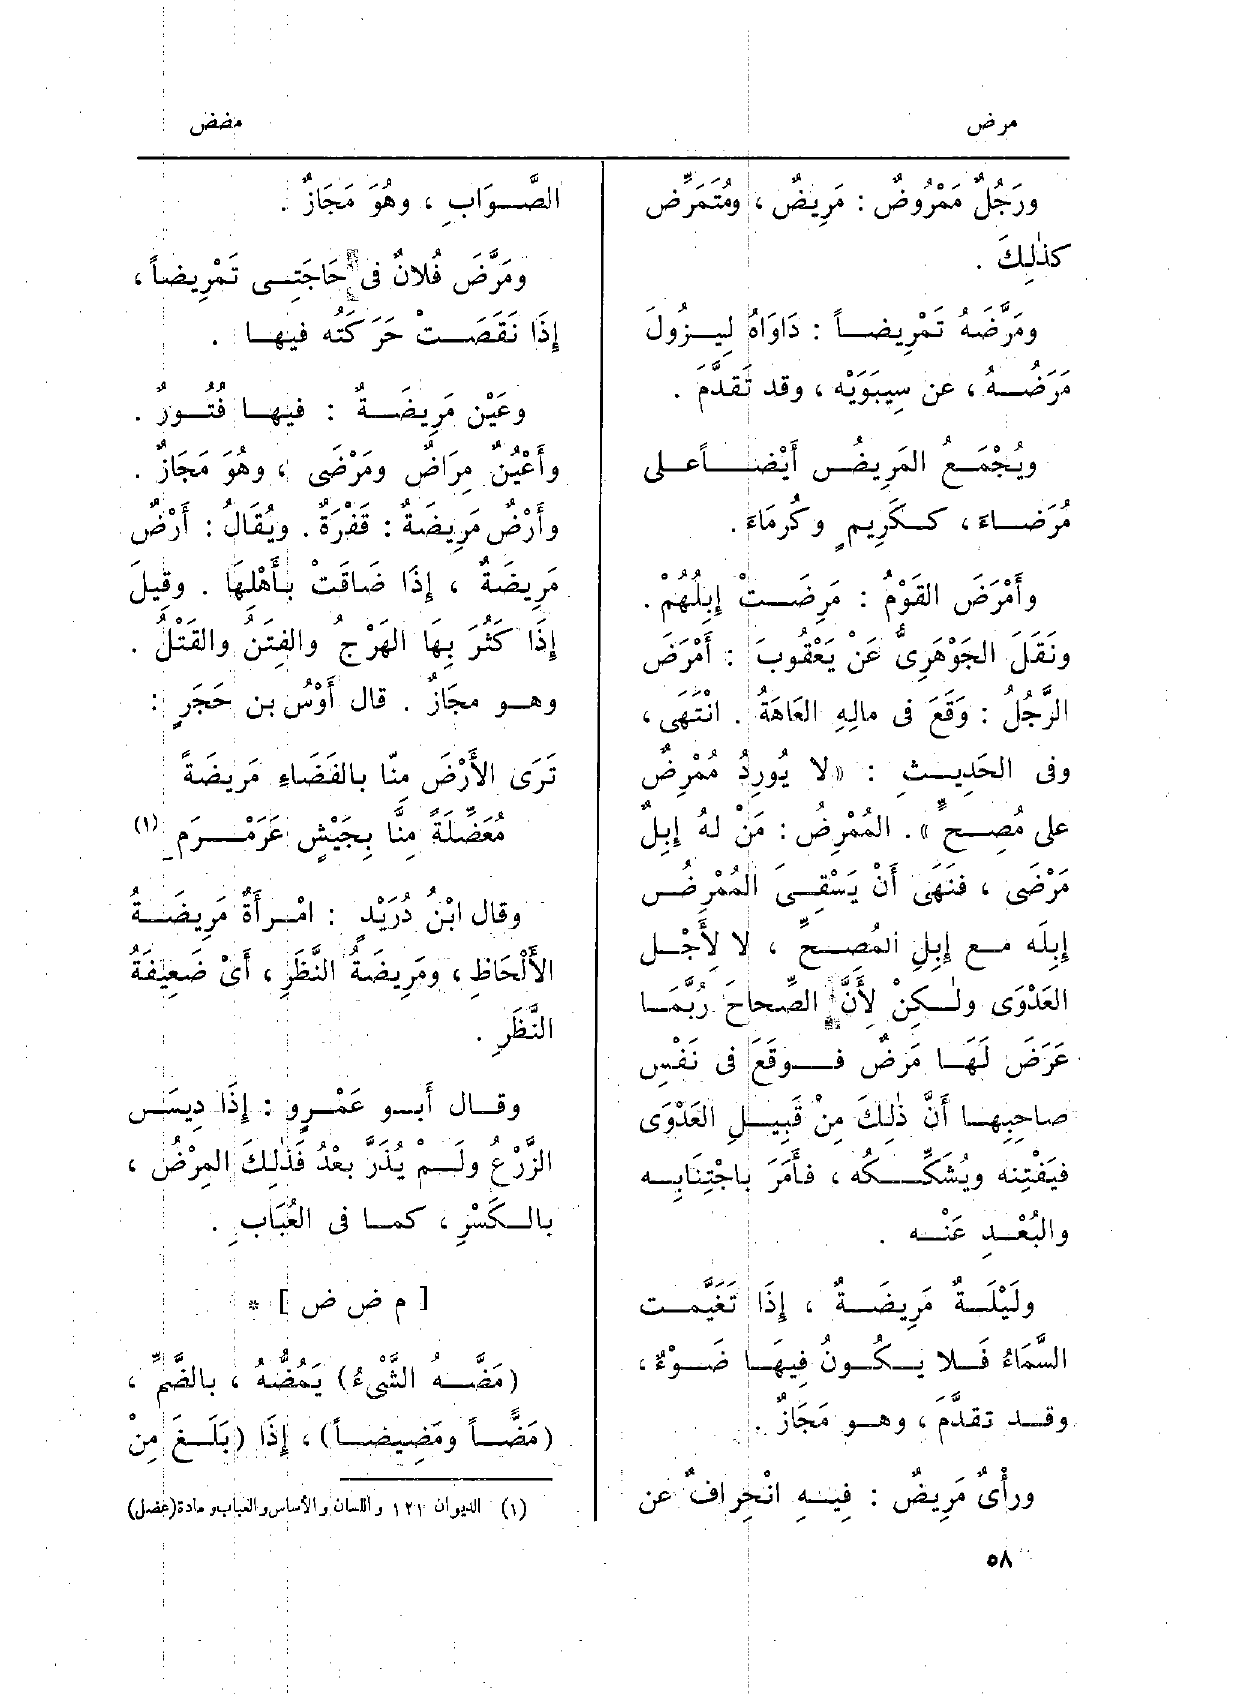 مرض
مضض
ورَجُلٌ مَمْرُوضٌ : مَرِيضٌ ، ومُتَمَرِّض
كذٰلِكَ .
ومَرَّضَهُ تَمْرِيضاً : دَاوَاهُ لِيَزُولَ
مَرَضُهُ ، عن سِيبَوَيْه ، وقد تَقَدَّمَ .
ويُجْمَع المَرِيضُ أَيْضاً على
مُرَضاءَ ، كَكَرِيمٍ وكُرمَاءَ .
وأَمْرَضَ القَوْمُ : مَرِضَتْ إِبِلُهُمْ .
ونَقَلَ الجَوْهَرِىُّ عَنْ يَعْقُوبَ : أَمْرَضَ
الرَّجُلُ : وَقَعَ فى مالِهِ العَاهَةُ . انْتَهَى ،
وفى الحَدِيثِ : « لا يُورِدُ مُمْرِضٌ
على مُصِحٍّ » . المُمْرِضُ : مَنْ لهُ إِبِلٌ
مَرْضَى ، فنَهَى أَنْ يَسْقِىَ المُمْرِضُ
إِبِلَه مع إِبِلِ المُصِحِّ ، لا لِأَجْلِ
العَدْوَى ولٰكِنْ لِأَنَّ الصِّحاحَ رُبَّمَا
عَرَضَ لَهَا مَرَضٌ فوقَعَ فى نَفْسِ
صاحِبِها أَنَّ ذٰلِكَ مِنْ قَبِيلِ العَدْوَى
فيَفْتِنه ويُشَكِّكُه ، فأَمَرَ باجْتِنَابِه
والبُعْدِ عَنْه .
ولَيْلَةٌ مَرِيضَةٌ ، إِذَا تَغَيَّمَت
السَّمَاءُ فَلا يَكُونُ فِيهَا ضَوْءٌ ،
وقد تقدَّمَ ، وهو مَجَازٌ .
ورأْىٌ مَرِيضٌ : فِيهِ انْحِرافٌ عن
الصَّوَابِ ، وهُوَ مَجَازٌ .
ومَرَّضَ فُلانٌ فى حَاجَتِى تَمْرِيضاً ،
إِذَا نَقَصَتْ حَرَكَتُه فيها .
وعَيْن مَرِيضَةٌ : فيها فُتُورٌ .
وأَعْيُنٌ مِرَاضٌ ومَرْضَى ، وهُوَ مَجَازٌ .
وأَرْضٌ مَرِيضَةٌ : قَفْرَةٌ . ويُقَالُ : أَرْضٌ
مَرِيضَةٌ ، إِذَا ضَاقَتْ بأَهْلِهَا . وقِيلَ
إِذَا كَثُرَ بِهَا الهَرْجُ والفِتَنُ والقَتْلُ .
وهو مجَازٌ . قال أَوْسُ بن حَجَرٍ :
تَرَى الأَرْضَ مِنَّا بالفَضَاءِ مَرِيضَةً
مُعَضِّلَةً مِنَّا بِجَيْشٍ عَرَمْرَمِ (١)
وقال ابْنُ دُرَيْدٍ : امْرأَةٌ مَرِيضَةُ
الأَلْحَاظِ ، ومَرِيضَةُ النَّظَرِ ، أَىْ ضَعِيفَةُ
النَّظَرِ .
وقال أَبو عَمْرٍو : إِذَا دِيسَ
الزَّرْعُ ولَمْ يُذَرَّ بعْدُ فَذٰلِكَ المِرْضُ ،
بالكَسْرِ ، كما فى العُبَابِ .
[ م ض ض ] *
(مَضَّهُ الشَّىْءُ) يَمُضُّهُ ، بالضَّمِّ ،
(مَضًّا ومَضِيضاً) ، إِذَا (بَلَغَ مِنْ
(١) الديوان ١٢١ واللسان والأساس والعباب ومادة (عضل)
٥٨